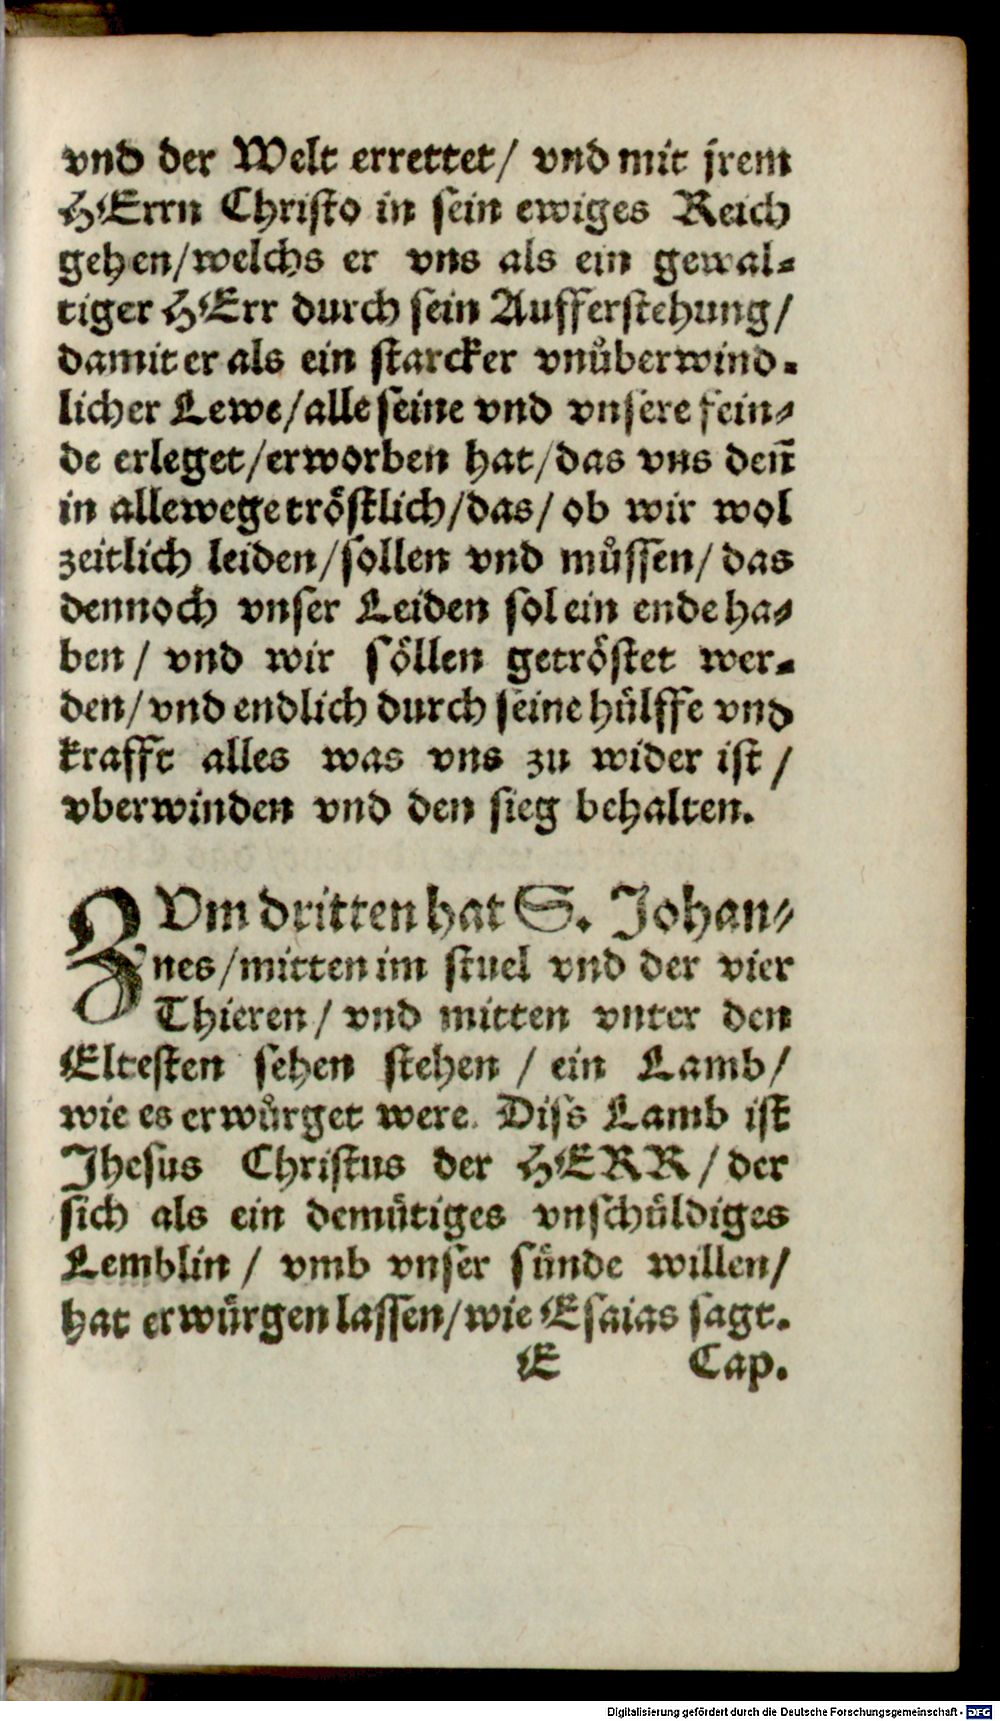 vnd der Welt errettet/ vnd mit jrem
HErrn Christo in sein ewiges Reich
gehen/welchs er vns als ein gewal-
tiger HErr durch sein Aufferstehung/
damit er als ein starcker vnuͤberwind-
licher Lewe/alle seine vnd vnsere fein-
de erleget/erworben hat/das vns deñ
in allewege troͤstlich/das/ ob wir wol
zeitlich leiden/sollen vnd muͤssen/ das
dennoch vnser Leiden sol ein ende ha-
ben/ vnd wir soͤllen getroͤstet wer-
den/vnd endlich durch seine huͤlffe vnd
krafft alles was vns zu wider ist/
vberwinden vnd den sieg behalten.
ZVm dritten hat S. Johan-
nes/mitten im stuel vnd der vier
Thieren/ vnd mitten vnter den
Eltesten sehen stehen/ ein Lamb/
wie es erwuͤrget were. Diss Lamb ist
Jhesus Christus der HERR/ der
sich als ein demuͤtiges vnschuͤldiges
Lemblin/ vmb vnser suͤnde willen/
hat erwuͤrgen lassen/wie Esaias sagt.
E Cap.
Digitalisierung gefördert durch die Deutsche Forschungsgemeinschaft - DFG